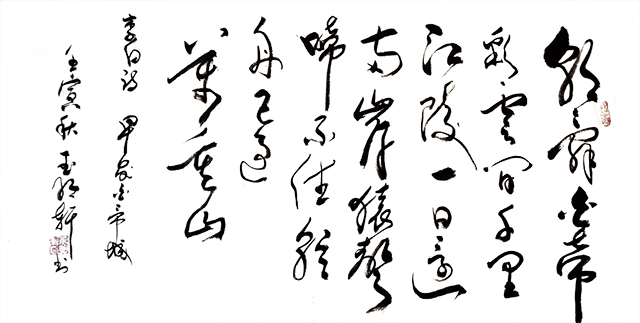 朝辞白帝
彩雲间千里
江陵一日還
两岸猿聲
啼不住轻
舟已過
萬重山
李白诗 早发白帝城
壬寅秋 玉 轩书